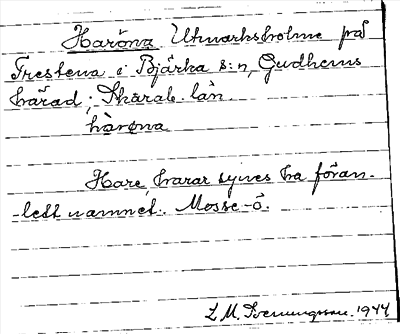 Haröna Utmarksholme på
Frestena i Bjärka s:n, Gudhems
härad; Skarab. län.
hàrøna
Hare, harar synes ha föran-
-lett namnet. Mosse-ö.
L. M. Svenungsson. 1944